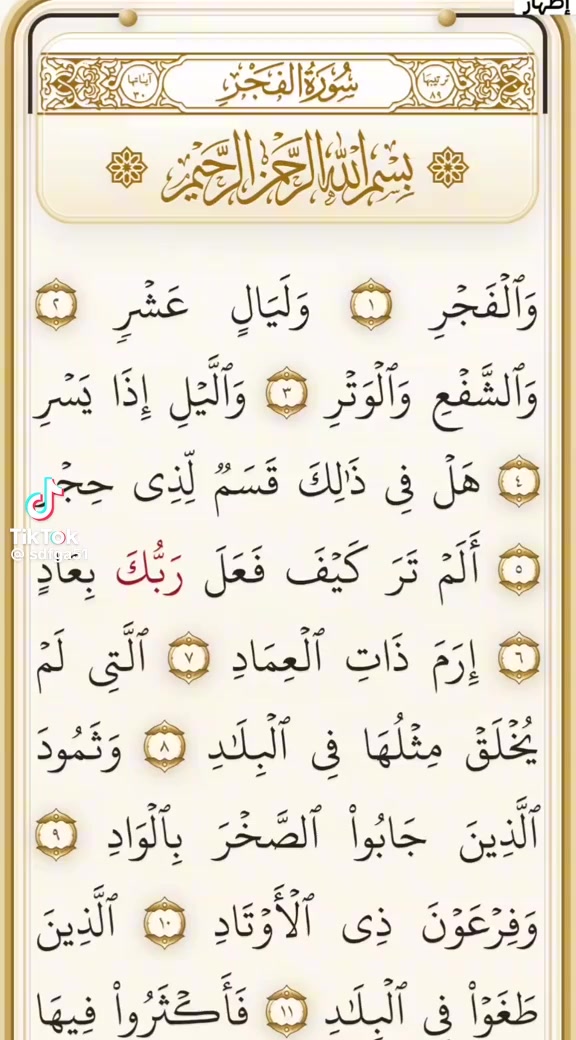 إظهار
ترتيبها ٨٩ سُورَةُ الفَجْرِ آياتها ٣٠
بِسْمِ اللَّهِ الرَّحْمَٰنِ الرَّحِيمِ
وَٱلْفَجْرِ ١ وَلَيَالٍ عَشْرٍ ٢
وَٱلشَّفْعِ وَٱلْوَتْرِ ٣ وَٱلَّيْلِ إِذَا يَسْرِ
٤ هَلْ فِى ذَٰلِكَ قَسَمٌ لِّذِى حِجْرٍ
٥ أَلَمْ تَرَ كَيْفَ فَعَلَ رَبُّكَ بِعَادٍ
٦ إِرَمَ ذَاتِ ٱلْعِمَادِ ٧ ٱلَّتِى لَمْ
يُخْلَقْ مِثْلُهَا فِى ٱلْبِلَٰدِ ٨ وَثَمُودَ
ٱلَّذِينَ جَابُوا۟ ٱلصَّخْرَ بِٱلْوَادِ ٩
وَفِرْعَوْنَ ذِى ٱلْأَوْتَادِ ١٠ ٱلَّذِينَ
طَغَوْا۟ فِى ٱلْبِلَٰدِ ١١ فَأَكْثَرُوا۟ فِيهَا
TikTok